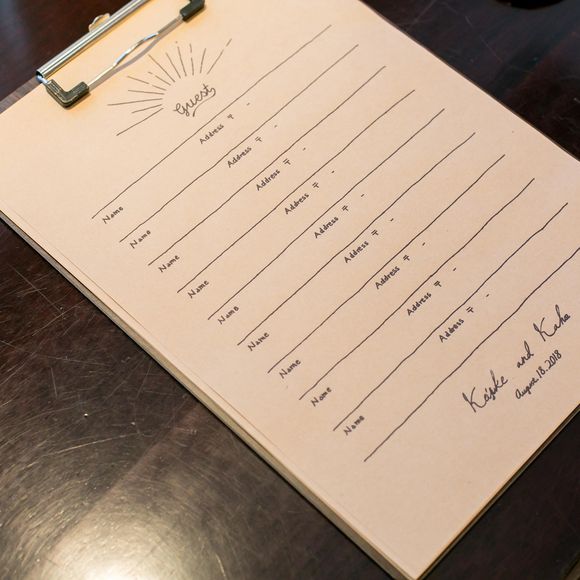 Guest
Name Address 〒 -
Name Address 〒 -
Name Address 〒 -
Name Address 〒 -
Name Address 〒 -
Name Address 〒 -
Name Address 〒 -
Name Address 〒 -
Name Address 〒 -
and Kaho
August.18.2018